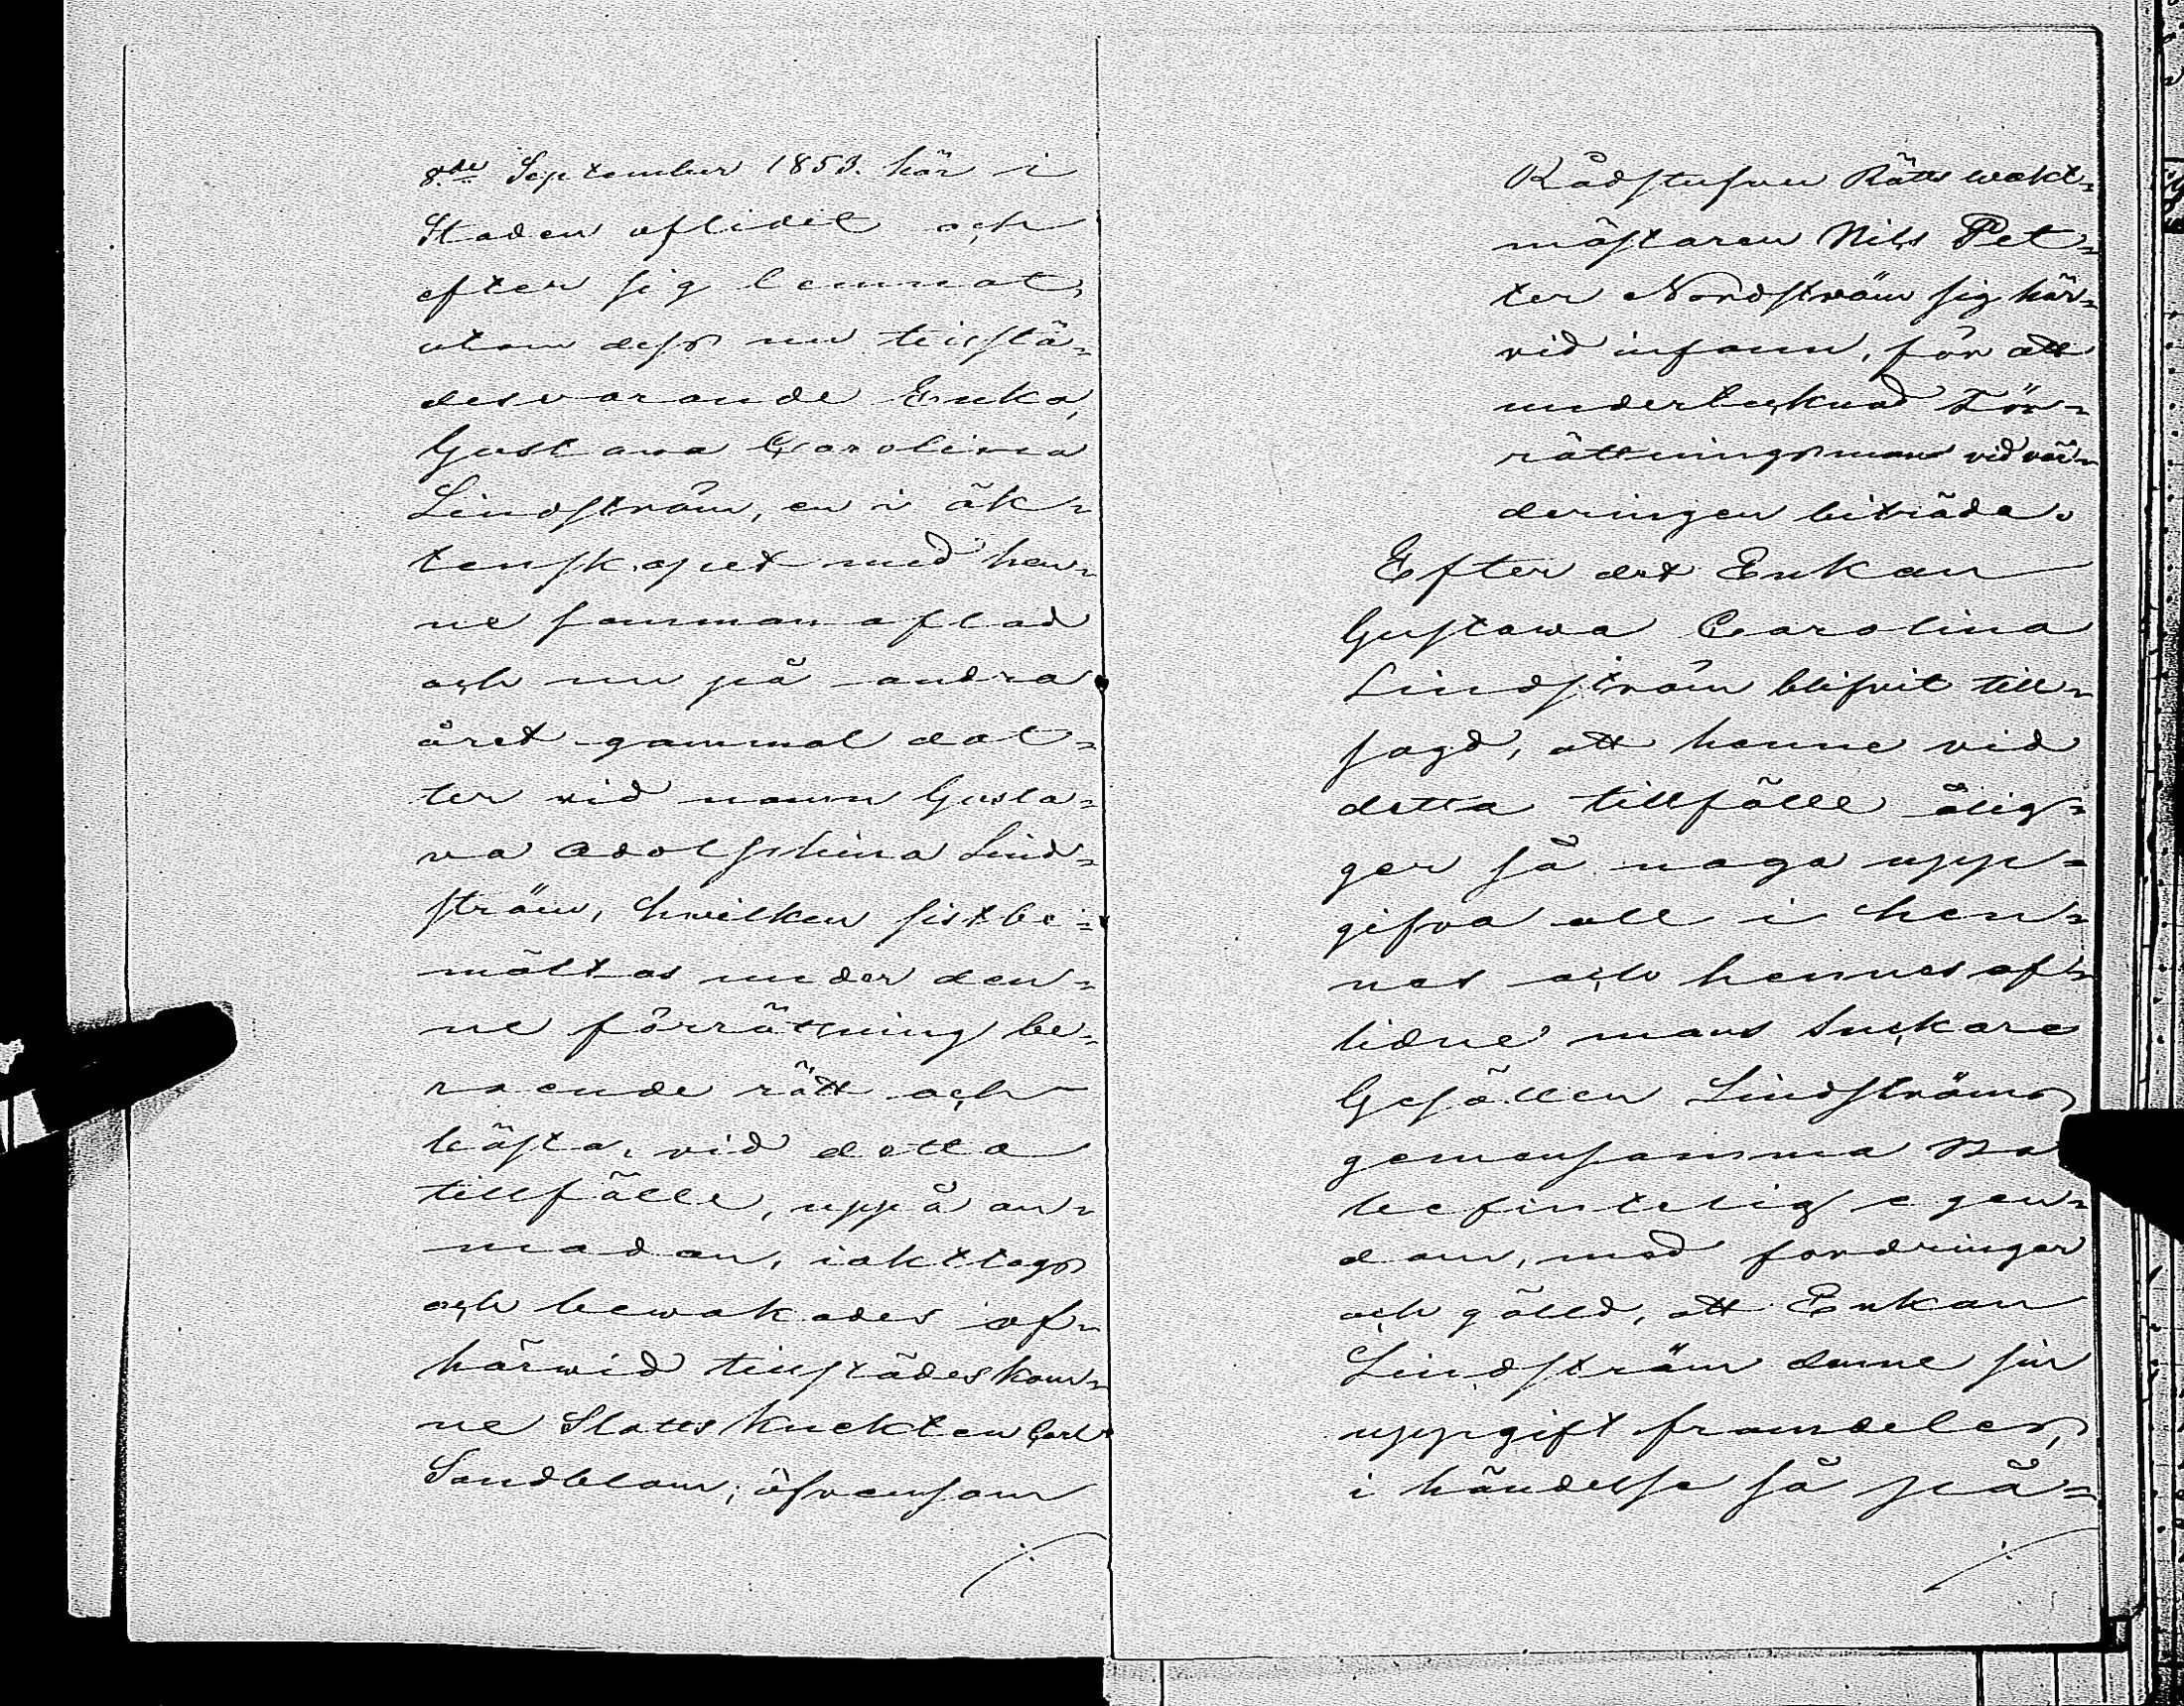 8.de September 1853. här i
Staden aflidit och
efter sig lemnat,
utom dess nu tillstä-
desvarande Enka,
Gustava Carolina
Lindström, en i äk-
tenskapet med hen-
ne sammanaflad
och nu på andra
året gammal dot-
ter vid namn Gusta-
va Adolphina Lind-
ström, hvilken sistbe-
mältas under den-
ne förrättning be-
roende rätt och
bästa, vid detta
tillfälle, uppå an-
modan, iakttogs
och bewakades af
härwid tillstädeskom-
ne Slottsknekten Carl
Sandblom; äfvensom
Rådstufvu Rätts wakt-
mästaren Nils Pet-
ter Nordström sig här-
vid infann, för att
undertecknad För-
rättningsman vid vär-
deringen biträda.
Efter det Enkan
Gustawa Carolina
Lindström blifvit till-
sagd, att henne vid
detta tillfälle ålig-
ger så noga upp-
gifva all i hen-
nes och hennes af-
lidne mans
Gesällen Lindströms
gemensamma Bo
befintelig egen-
dom, med fordringar
och gäld, att Enkan
Lindström denne sin
uppgift framdeles,
i händelse så på-